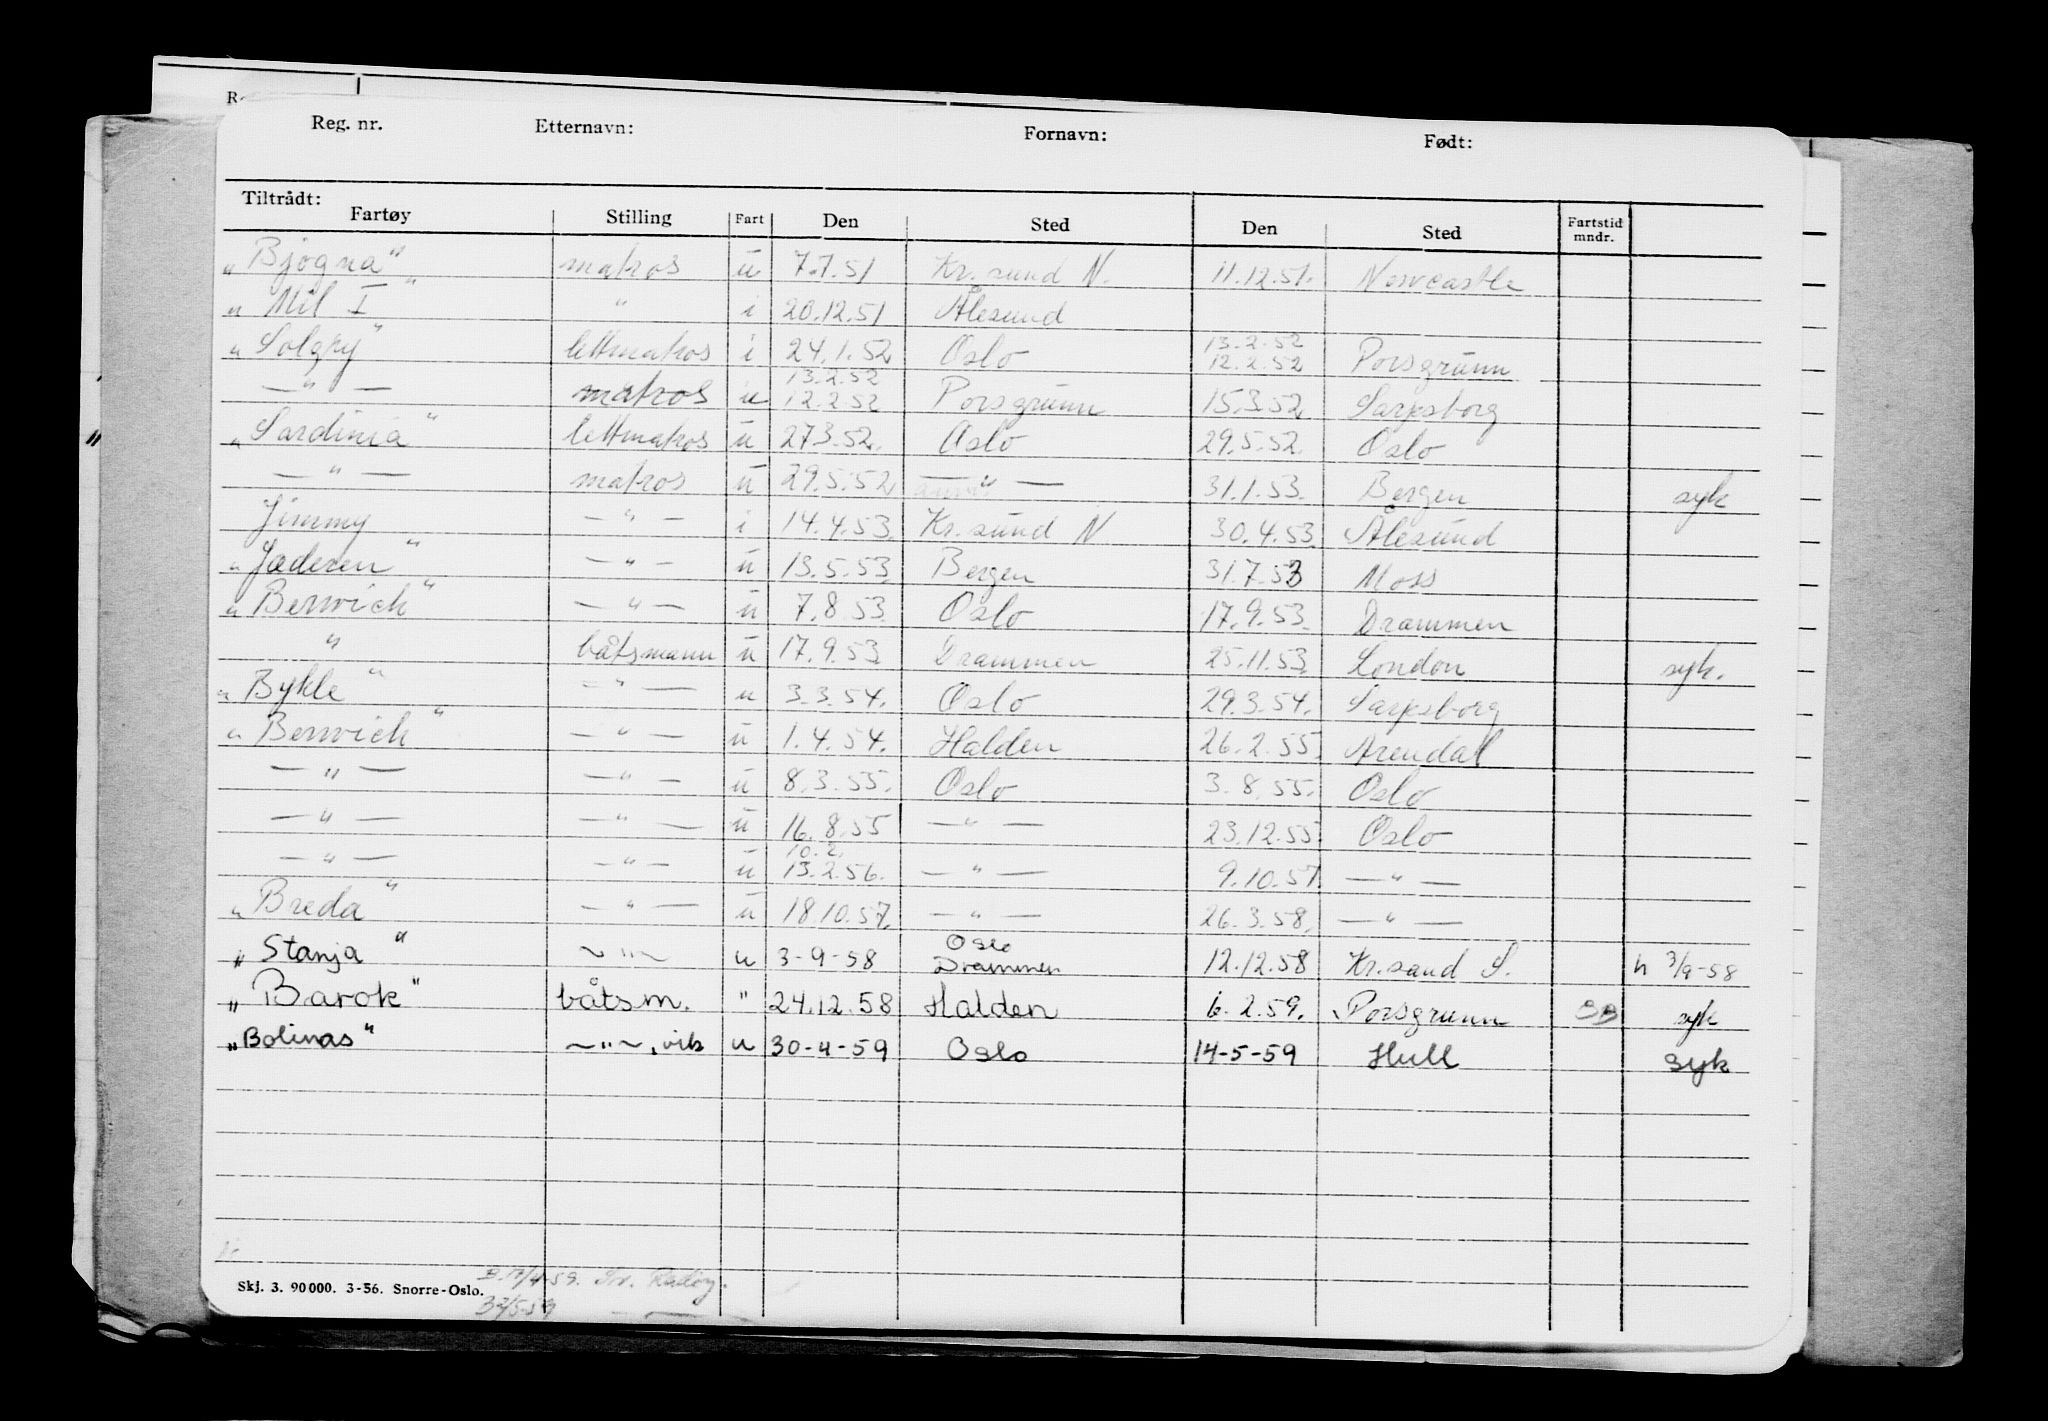 Reg. nr. Etternavn: Fornavn: Født:
Tiltrådt:
Fartøy Stilling Fart Den Sted Den Sted Fartstid mndr.
„Bjøgna“ matros u 7.7.51 Kr.sund N. 11.12.51. Newcastle
„Mil I“ " i 20.12.51 Ålesund
„Solgry“ lettmatros i 24.1.52 Oslo 13.2.52 12.2.52 Porsgrunn
— " — matros u 13.2.52 12.2.52 Porsgrunn 15.3.52 Sarpsborg
„Sardinia“ lettmatros u 27.3.52. Oslo 29.5.52. Oslo
— " — matros u 29.5.52 — " — 31.1.53. Bergen syk
Jimmy — " — i 14.4.53. Kr.sund N 30.4.53. Ålesund
„Jæderen“ — " — u 13.5.53. Bergen 31.7.53 Moss
„Berwick“ — " — u 7.8.53. Oslo 17.9.53. Drammen
" båtsmann u 17.9.53 Drammen 25.11.53. London syk.
„Bykle“ — " — u 3.3.54. Oslo 29.3.54. Sarpsborg
„Berwick“ — " — u 1.4.54. Halden 26.2.55. Arendal
— " — — " — u 8.3.55. Oslo 3.8.55. Oslo
— " — — " — u 16.8.55 — " — 23.12.55. Oslo
— " — — " — u 10.2. 13.2.56. — " — 9.10.57. — " —
„Breda“ — " — u 18.10.57. — " — 26.3.58. — " —
„Stanja“ ~ " ~ u 3-9-58 Oslo Drammen 12.12.58 Kr.sand S. h 3/9-58
„Barok“ båtsm. " 24.12.58 Halden 6.2.59. Porsgrunn syk
„Bolinas“ ~ " ~, vik u 30-4-59 Oslo 14-5-59 Hull syk
Skj. 3. 90000. 3-56. Snorre-Oslo.